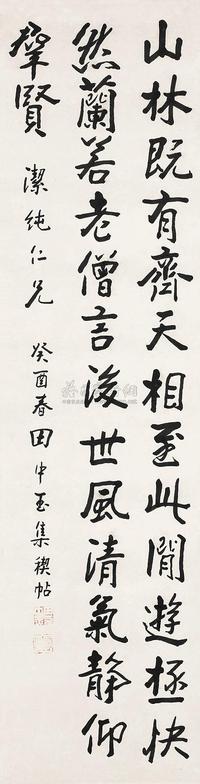 山林既有齊天相至此閒遊極快
然蘭若老僧言後世風清氣靜仰
羣賢 潔純仁兄 癸酉春田中玉集禊帖